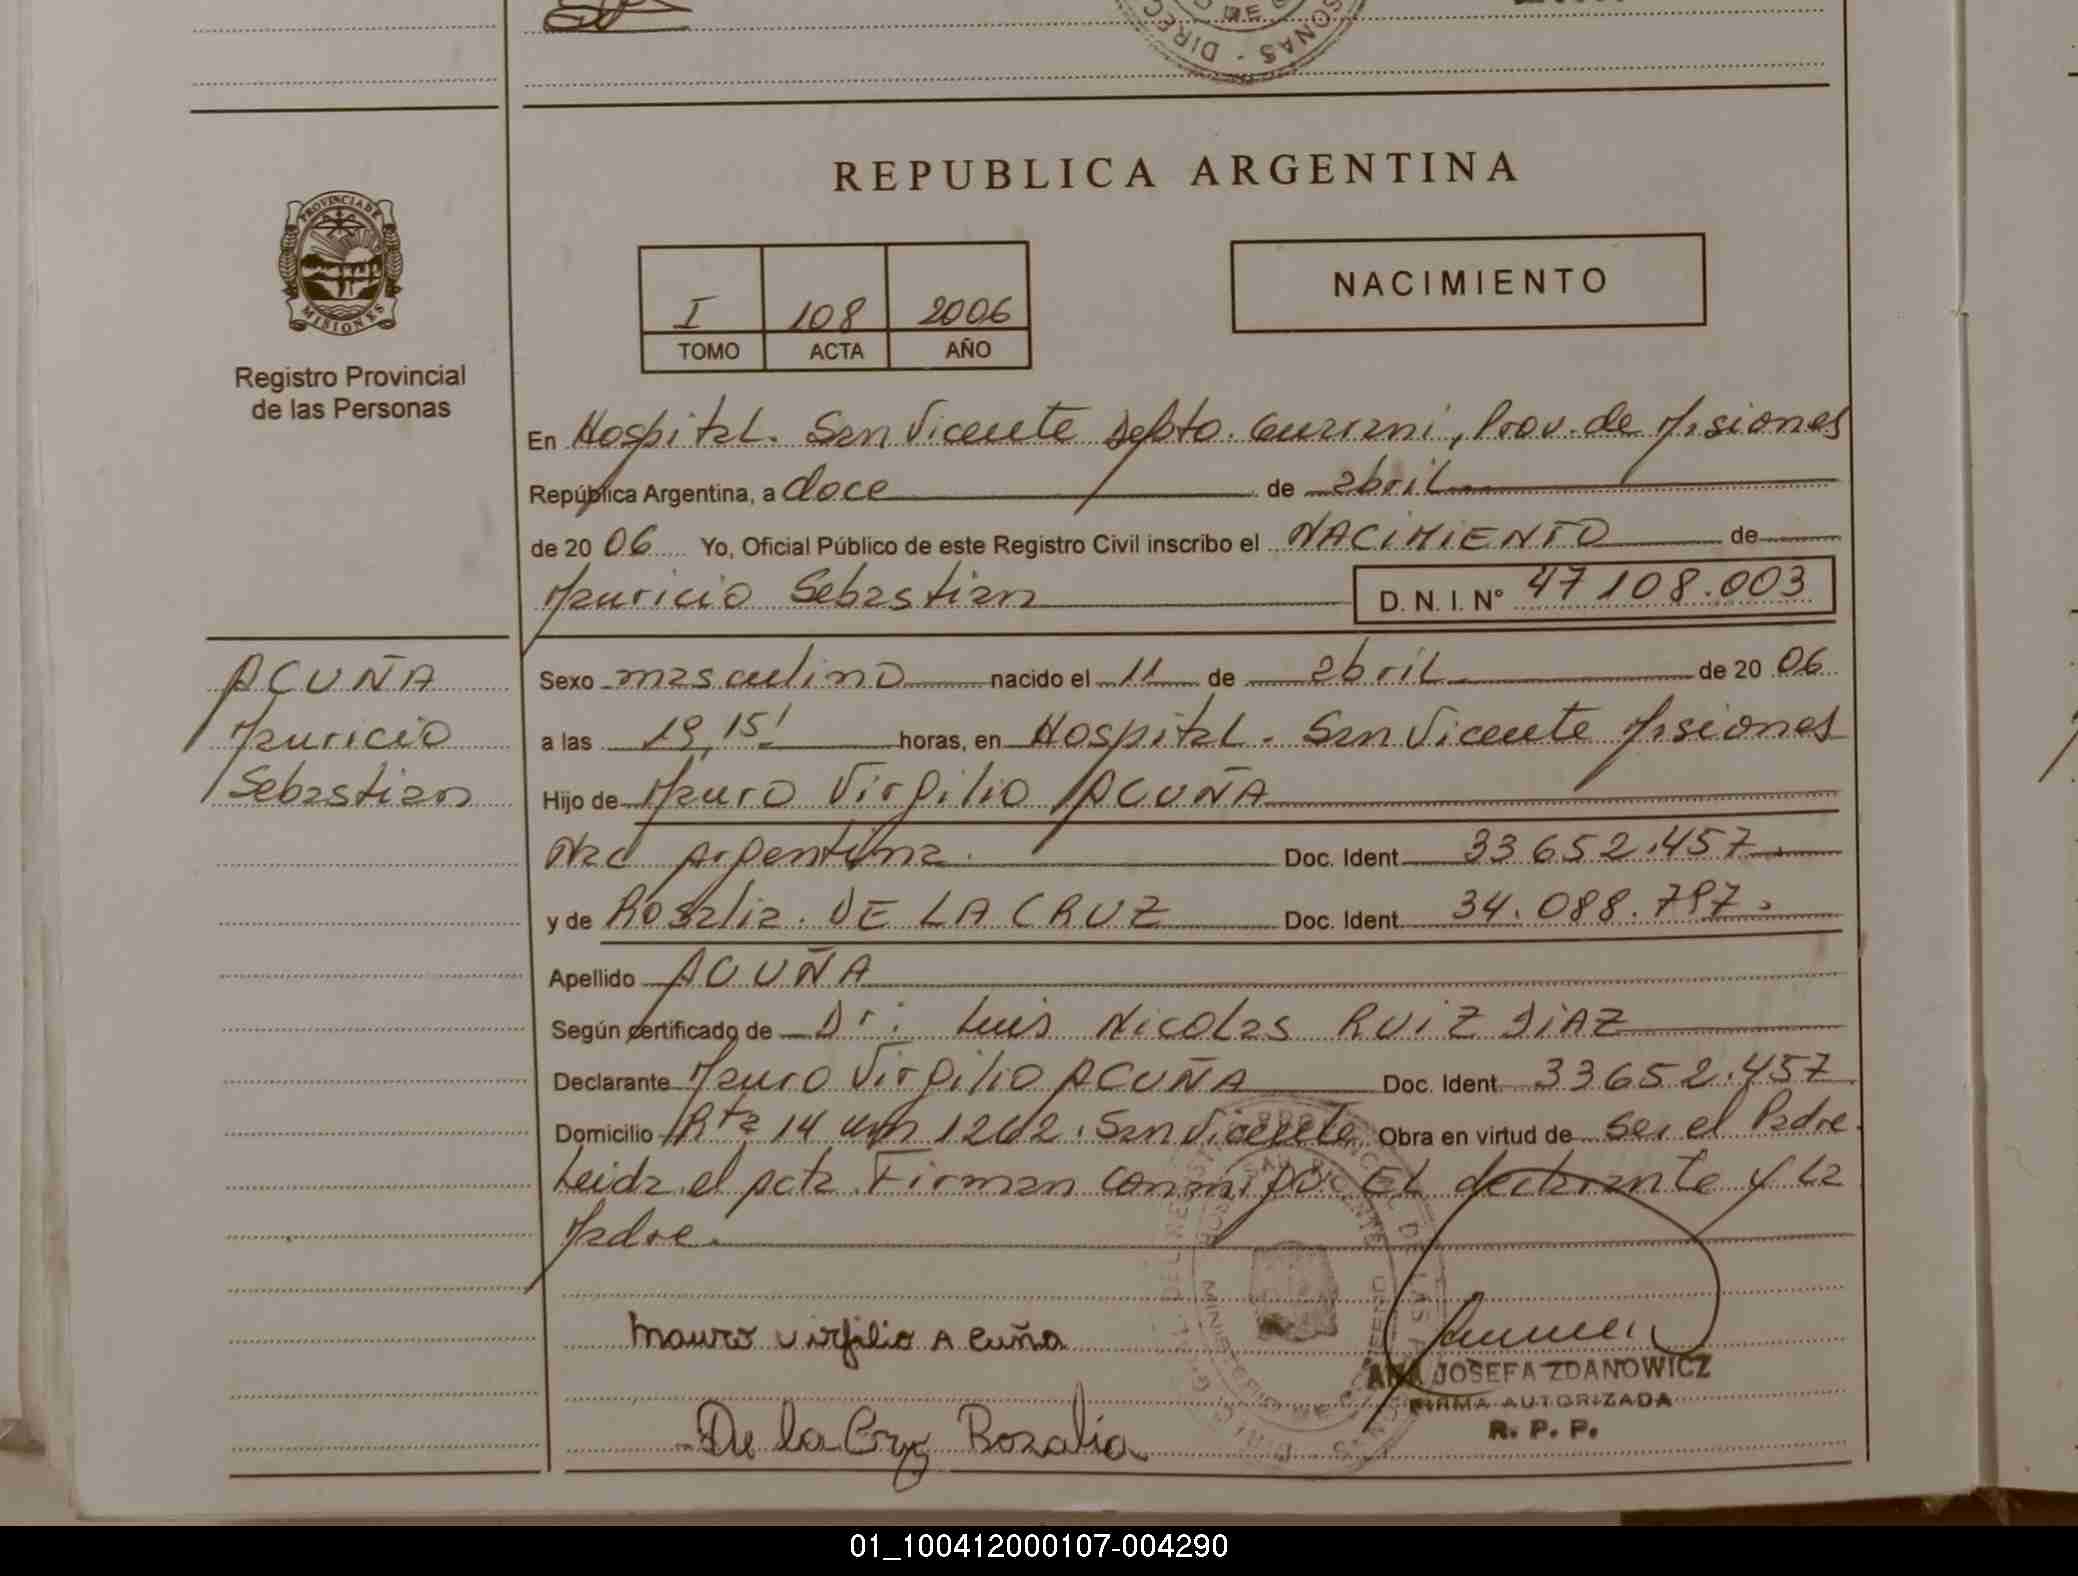 REPUBLICA ARGENTINA
PROVINCIA DE
MISIONES
Registro Provincial
de las Personas
NACIMIENTO
I 108 2006
TOMO ACTA AÑO
En Hospital. San Vicente Depto. Guarani, Prov. de Misiones
República Argentina, a doce de abril
de 20 06 Yo, Oficial Público de este Registro Civil inscribo el NACIMIENTO de
Mauricio Sebastian D. N. I. N° 47 108.003
ACUÑA
Mauricio
Sebastian
Sexo masculino nacido el 11 de abril de 20 06
a las 19,15' horas, en Hospital. San Vicente Misiones
Hijo de Mauro Virgilio ACUÑA
Nac Argentina. Doc. Ident. 33 652.457
y de Rosalia. DE LA CRUZ Doc. Ident. 34.088.797.
Apellido ACUÑA
Según certificado de Dr. Luis Nicolas RUIZ DIAZ
Declarante Mauro Virgilio ACUÑA Doc. Ident. 33652.457
Domicilio Rta 14 km 1262. San Vicente Obra en virtud de ser el Padre
Leida el acta Firman conmigo EL declarante y La
Madre.
Mauro Virgilio Acuña
ANA JOSEFA ZDANOWICZ
FIRMA AUTORIZADA
R. P. P.
De la Cruz Rozalia
01_100412000107-004290